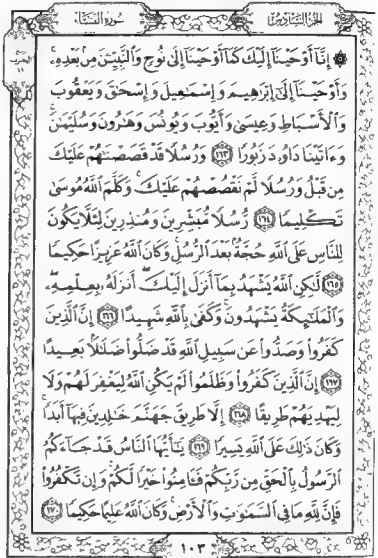 سُورَةُ النِّسَاءِ
الجُزْءُ السَّادِسُ
۞ إِنَّآ أَوْحَيْنَآ إِلَيْكَ كَمَآ أَوْحَيْنَآ إِلَىٰ نُوحٍ وَٱلنَّبِيِّـۧنَ مِنۢ بَعْدِهِۦۚ
وَأَوْحَيْنَآ إِلَىٰٓ إِبْرَٰهِيمَ وَإِسْمَٰعِيلَ وَإِسْحَٰقَ وَيَعْقُوبَ
وَٱلْأَسْبَاطِ وَعِيسَىٰ وَأَيُّوبَ وَيُونُسَ وَهَٰرُونَ وَسُلَيْمَٰنَۚ
وَءَاتَيْنَا دَاوُۥدَ زَبُورًا ١٦٣ وَرُسُلًا قَدْ قَصَصْنَٰهُمْ عَلَيْكَ
مِن قَبْلُ وَرُسُلًا لَّمْ نَقْصُصْهُمْ عَلَيْكَۚ وَكَلَّمَ ٱللَّهُ مُوسَىٰ
تَكْلِيمًا ١٦٤ رُّسُلًا مُّبَشِّرِينَ وَمُنذِرِينَ لِئَلَّا يَكُونَ
لِلنَّاسِ عَلَى ٱللَّهِ حُجَّةٌۢ بَعْدَ ٱلرُّسُلِۚ وَكَانَ ٱللَّهُ عَزِيزًا حَكِيمًا
١٦٥ لَّٰكِنِ ٱللَّهُ يَشْهَدُ بِمَآ أَنزَلَ إِلَيْكَۖ أَنزَلَهُۥ بِعِلْمِهِۦۖ
وَٱلْمَلَٰٓئِكَةُ يَشْهَدُونَۚ وَكَفَىٰ بِٱللَّهِ شَهِيدًا ١٦٦ إِنَّ ٱلَّذِينَ
كَفَرُوا۟ وَصَدُّوا۟ عَن سَبِيلِ ٱللَّهِ قَدْ ضَلُّوا۟ ضَلَٰلًۢا بَعِيدًا
١٦٧ إِنَّ ٱلَّذِينَ كَفَرُوا۟ وَظَلَمُوا۟ لَمْ يَكُنِ ٱللَّهُ لِيَغْفِرَ لَهُمْ وَلَا
لِيَهْدِيَهُمْ طَرِيقًا ١٦٨ إِلَّا طَرِيقَ جَهَنَّمَ خَٰلِدِينَ فِيهَآ أَبَدًاۚ
وَكَانَ ذَٰلِكَ عَلَى ٱللَّهِ يَسِيرًا ١٦٩ يَٰٓأَيُّهَا ٱلنَّاسُ قَدْ جَآءَكُمُ
ٱلرَّسُولُ بِٱلْحَقِّ مِن رَّبِّكُمْ فَـَٔامِنُوا۟ خَيْرًا لَّكُمْۚ وَإِن تَكْفُرُوا۟
فَإِنَّ لِلَّهِ مَا فِى ٱلسَّمَٰوَٰتِ وَٱلْأَرْضِۚ وَكَانَ ٱللَّهُ عَلِيمًا حَكِيمًا ١٧٠
١٠٣